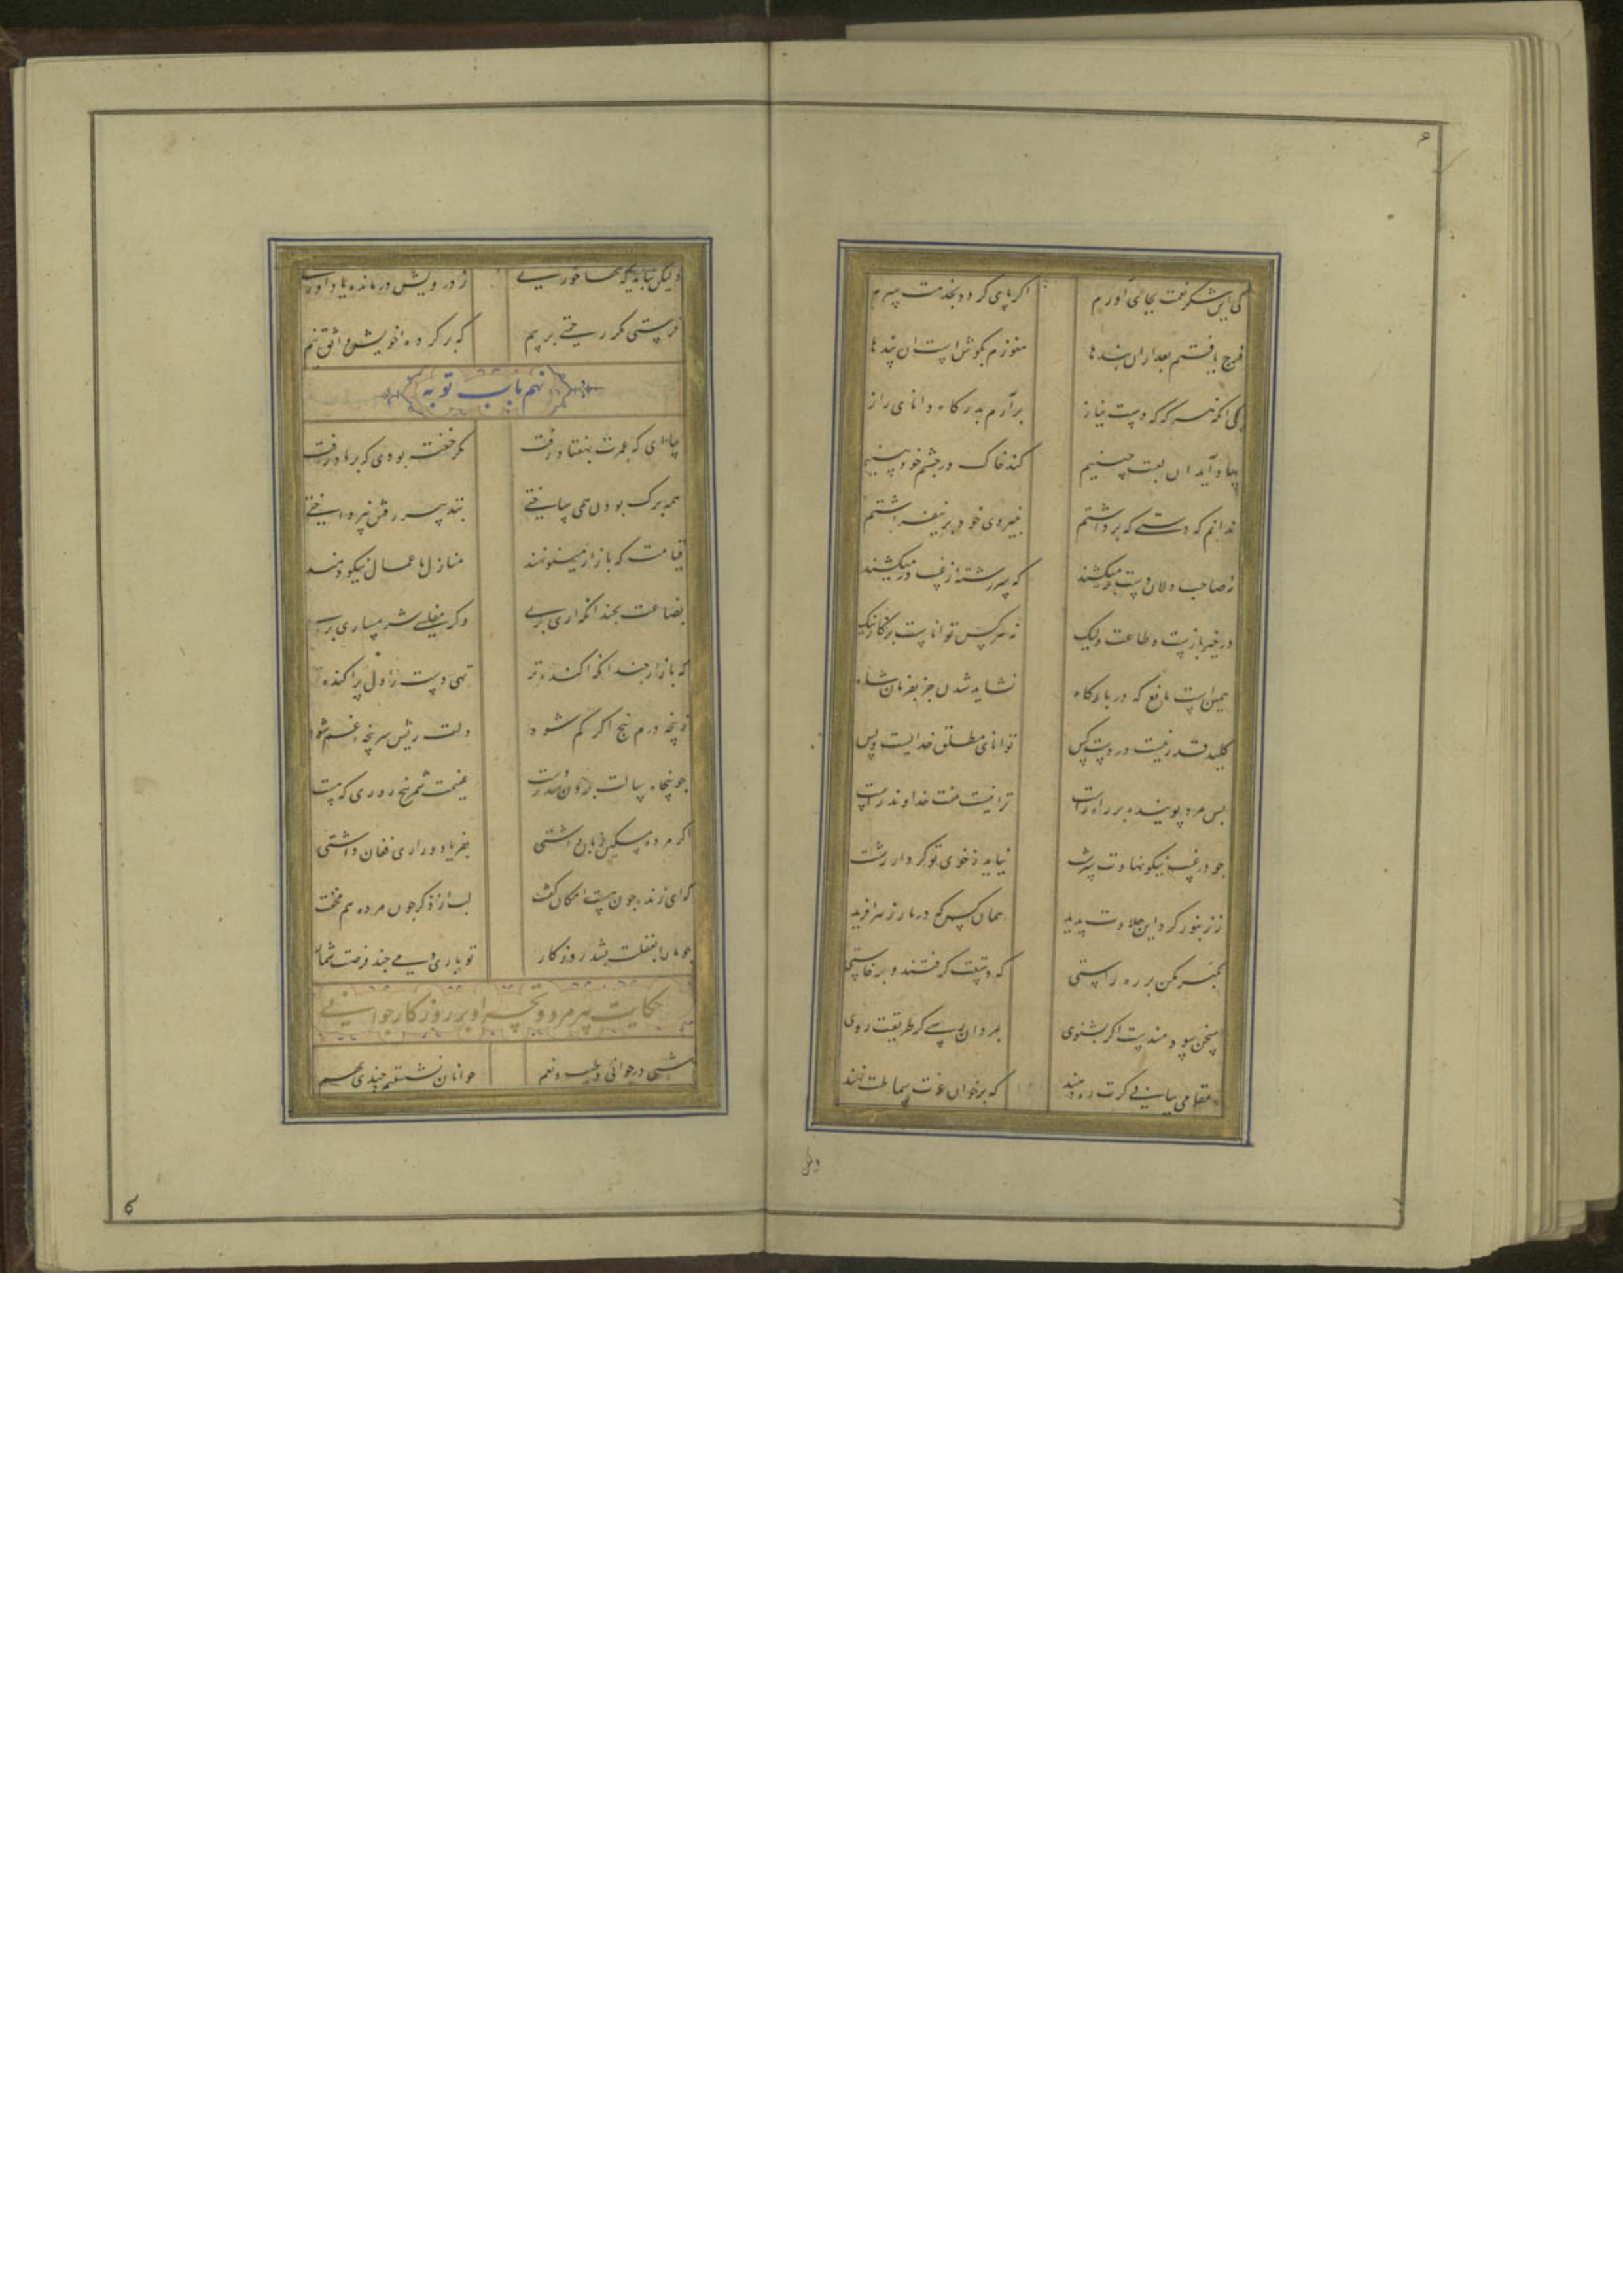 کی این شکر نعمت بجای آورم اکر پای کردد بخدمت سرم
فرج یافتم بعد ازان بندها هنوزم بکوش است ان پندها
یکی انکه هر که که دست نیاز برآرم بدرکاه دانای راز
بیاد آید ان لعبت چینیم کند خاک در چشم خودبینیم
بدانم که دستی که برداشتم بنیروی خود بر نیفراشتم
نه صاحب دلان دست برمیکشند که سررشته از غیب درمیکشند
در خیر بازست و طاعت ولیک نه هرکس تواناست بر کار نیک
همین است مانع که در بارکاه نشاید شدن جز بفرمان شاه
کلید قدر نیست در دست کس توانای مطلق خدایست و بس
پس مرد پوینده بر راه راست ترا نیست منت خداوند راست
جو در غیب نیکو نهادت سرشت نیاید ز خوی تو کردار زشت
ز زنبور کرد این حلاوت پدید همان کس که در مار زهر آفرید
تکبر مکن بر ره راستی که دستت کرفتند و برخاستی
سخن سودمندست اکر بشنوی بمردان رسی کر طریقت روی
مقامی بیابی کرت ره دهند که برخوان عزت سماطت نهند
ولیکن نباید که تنها خوری ز درویش درمانده یاد آوری
فرستی مکر رحمتی بر پیم که بر کرده خویش واثق نیم
نهم باب توبه
بیا ای که عمرت بهفتاد رفت مکر خفته بودی که بر باد رفت
همه برک بودن همی ساختی بتدبیر رفتن نپرداختی
قیامت که بازار مینو نهند منازل باعمال نیکو دهند
بضاعت بجندانکه اری بری وکر مفلسی شرمساری بری
که بازار جندانکه اکنده تر تهی دست را دل پراکنده تر
ز پنجه درم پنج اکر کم شود دلت ریش سرپنجه غم شود
جو پنجاه سالت برون شد ز دست غنیمت شمر پنج روزی که هست
اکر مرده مسکین زبان داشتی بفریاد و زاری فغان داشتی
که ای زنده جون هست امکان کفت لب از ذکر جون مرده بر هم مخفت
جو ما را بغفلت بشد روزکار تو باری دمی جند فرصت شمار
حکایت پیرمرد و تحسر او بر روزکار جوانی
شبی در جوانی و طیب و نعم جوانان نشستیم چندی بهم
ولیکن